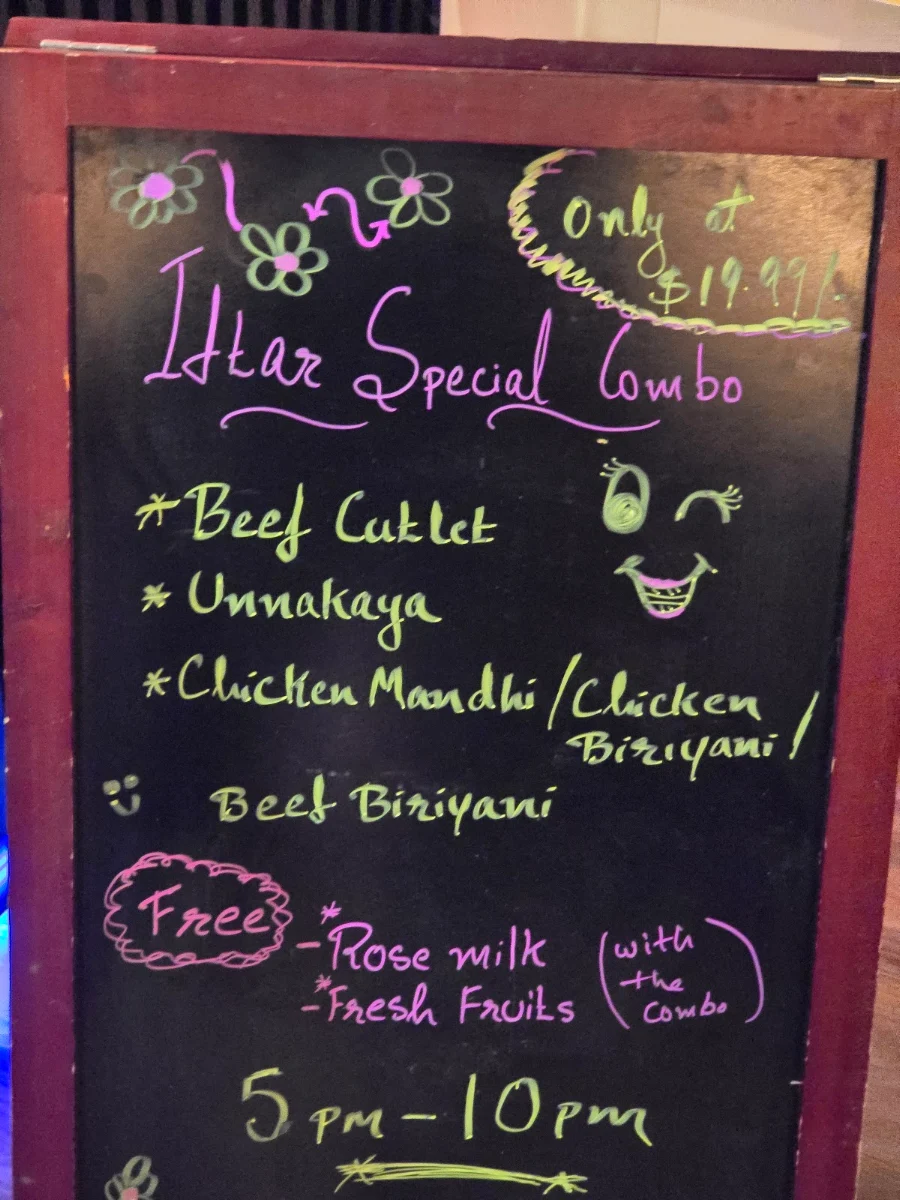 Only at
$19.99/-
Iftar Special Combo
* Beef Cutlet
* Unnakaya
* Chicken Mandhi / Chicken
Biriyani /
Beef Biriyani
Free
* - Rose milk
* - Fresh Fruits
(with
the
combo)
5 pm - 10 pm